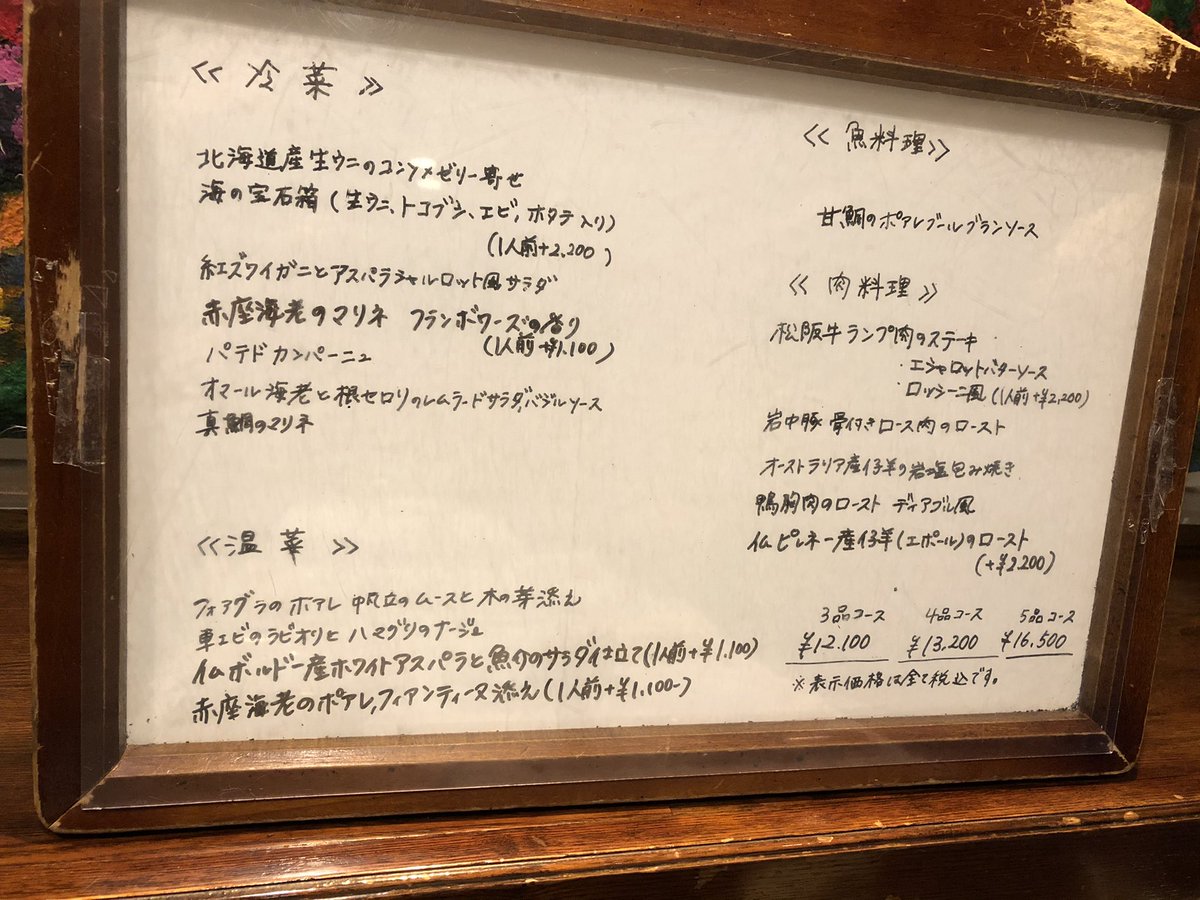 ≪ 冷菜 ≫
北海道産生ウニのコンソメゼリー寄せ
海の宝石箱 (生ウニ、トコブシ、エビ、ホタテ入り)
(1人前+2,200)
紅ズワイガニとアスパラシャルロット風サラダ
赤座海老のマリネ フランボワーズの香り
(1人前+¥1.100)
パテドカンパーニュ
オマール海老と根セロリのレムラードサラダ,バジルソース
真鯛のマリネ
≪温菜≫
フォアグラのポアレ 帆立のムースと木の芽添え
車エビのラビオリとハマグリのナージュ
仏ボルドー産ホワイトアスパラと魚介のサラダ仕立て(1人前+¥1.100)
赤座海老のポアレ,フィアンティーヌ添え(1人前+¥1.100-)
≪魚料理≫
甘鯛のポアレブールブランソース
≪肉料理≫
松阪牛ランプ肉のステーキ
・エシャロットバターソース
・ロッシーニ風 (1人前+¥2,200)
岩中豚 骨付きロース肉のロースト
オーストラリア産仔羊の岩塩包み焼き
鴨胸肉のロースト ディアブル風
仏ピレネー産仔羊(エポール)のロースト
(+¥2.200)
3品コース 4品コース 5品コース
¥12.100 ¥13,200 ¥16,500
※表示価格は全て税込です。